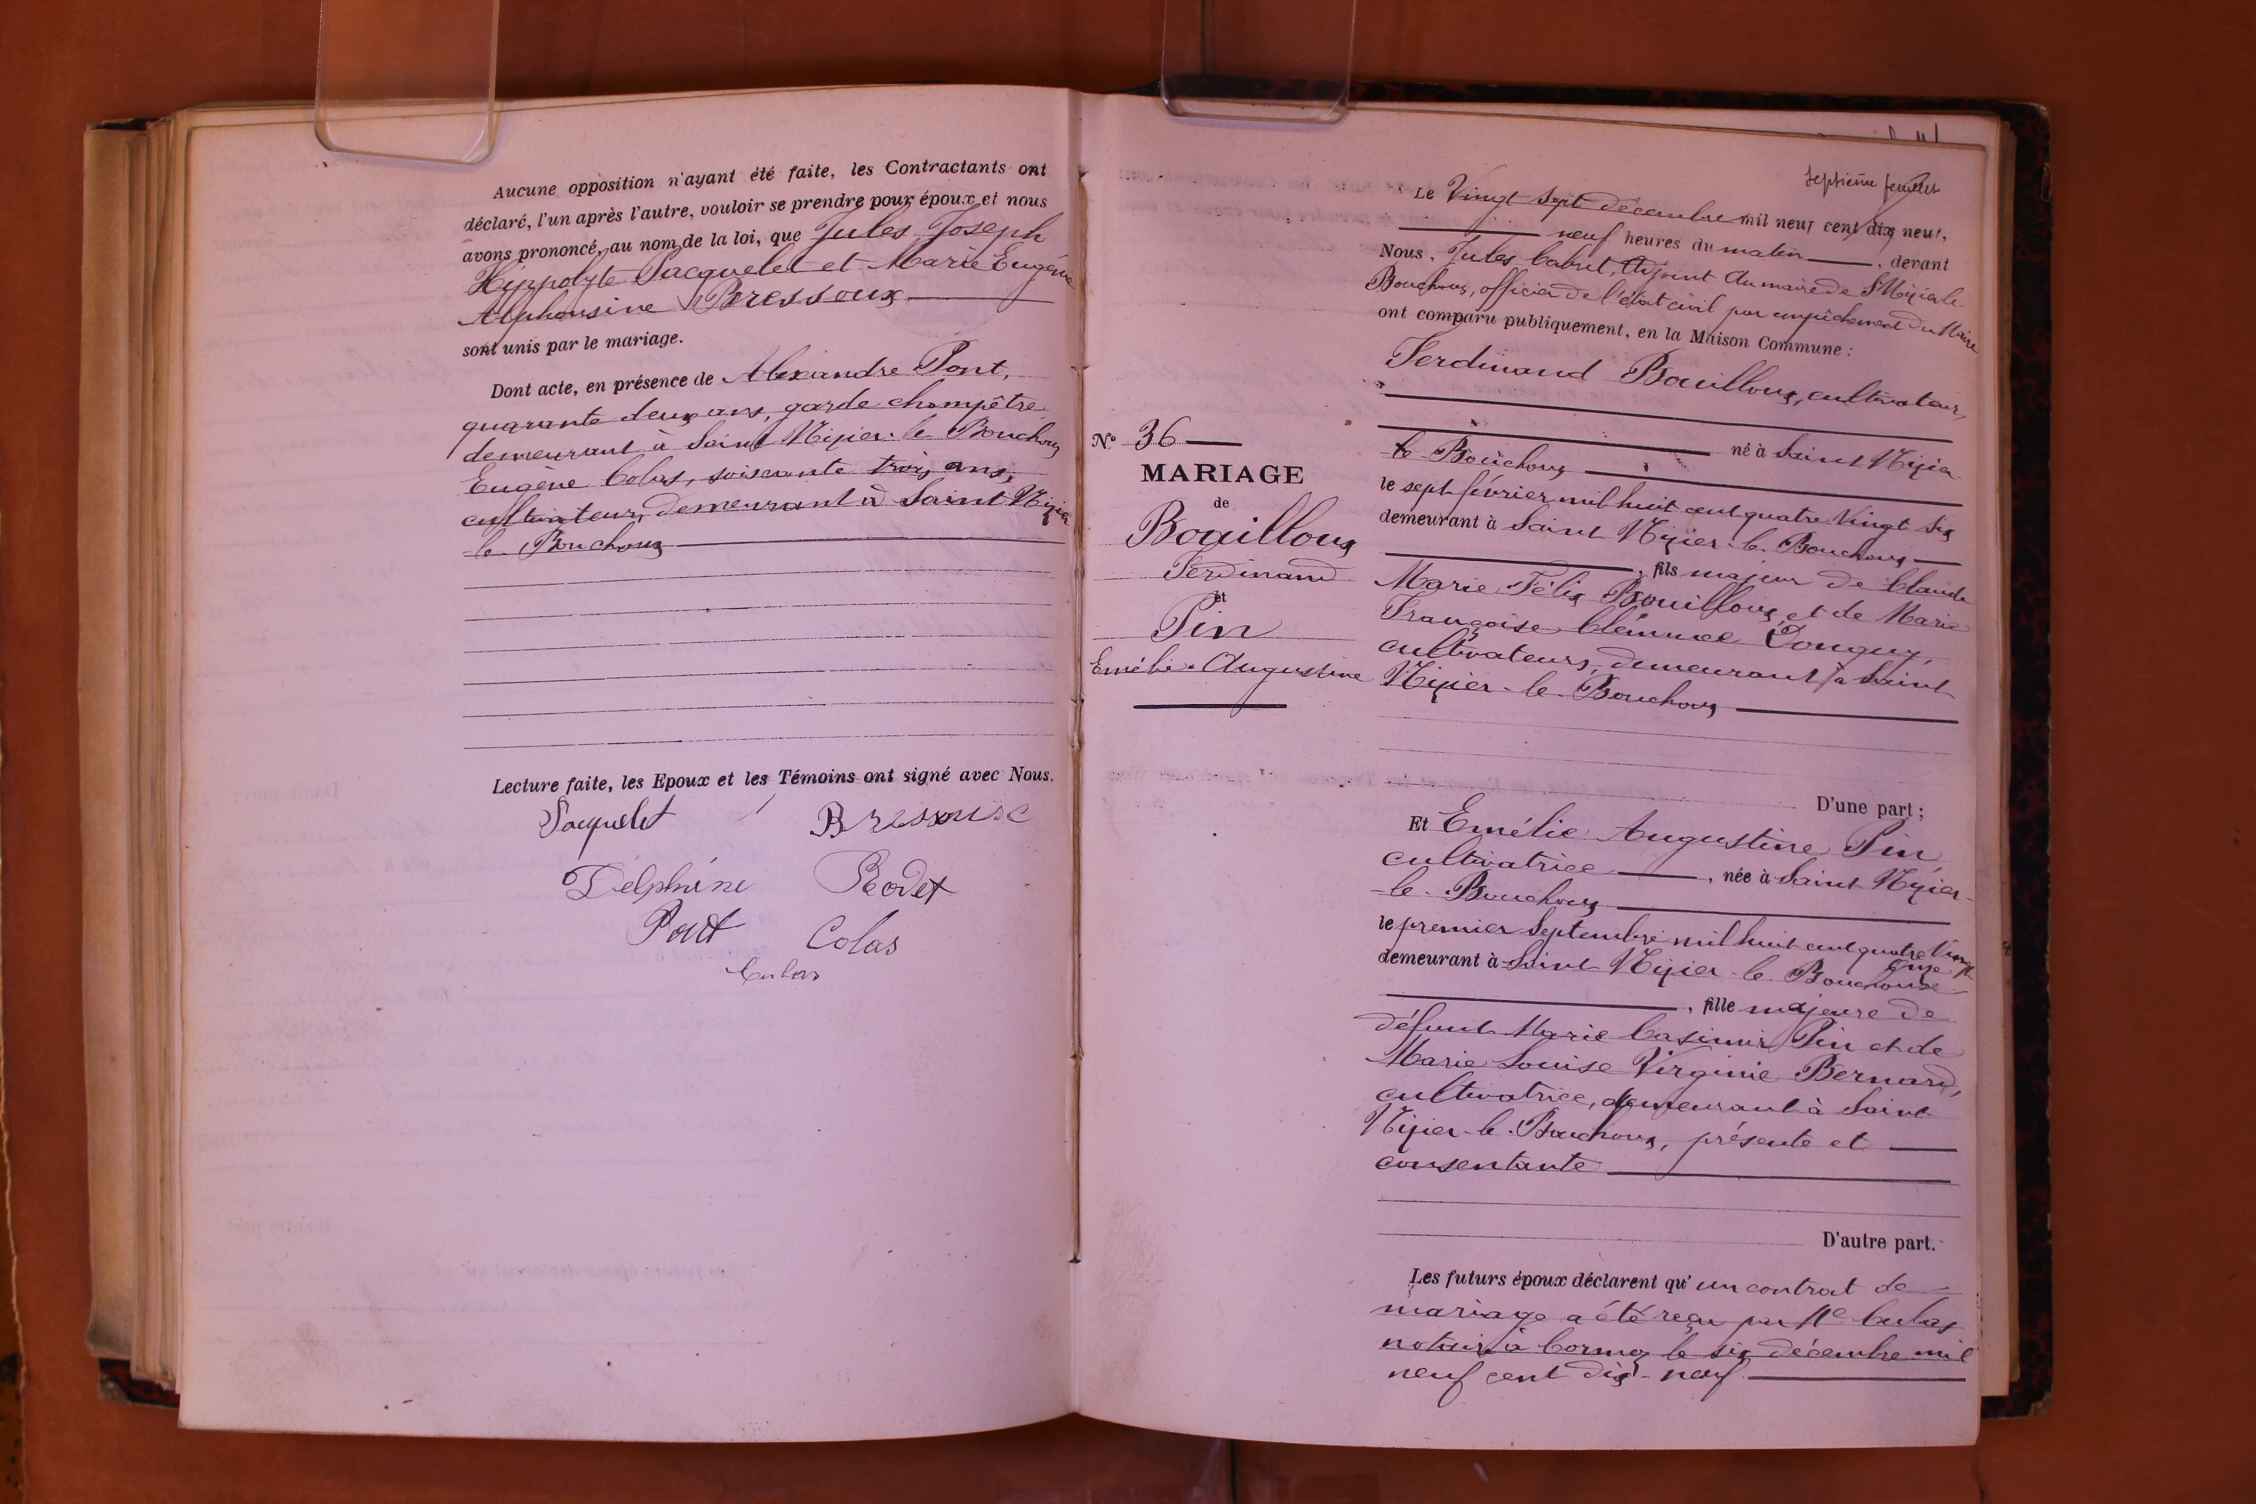 Aucune opposition n'ayant été faite, les Contractants ont
déclaré, l'un après l'autre, vouloir se prendre pour époux et nous
avons prononcé, au nom de la loi, que Jules Joseph
Hippolyte Pacquelet et Marie Eugénie
Alphonsine Bressoux
sont unis par le mariage.
Dont acte, en présence de Alexandre Pont,
quarante deux ans, garde champêtre
demeurant à Saint Nizier-le-Bouchoux
Eugène Colas, soixante trois ans,
cultivateur, demeurant à Saint Nizier
le Bouchoux
Lecture faite, les Epoux et les Témoins ont signé avec Nous.
Pacquelet Bressoux
Delphine Rodet
Pont Colas
septième feuillet
Le Vingt sept décembre mil neuf cent dix neuf,
neuf heures du matin, devant
Nous, Jules Cabut, Adjoint au maire de St Nizier le
Bouchoux, officier de l'état civil par empêchement du Maire
ont comparu publiquement, en la Maison Commune :
Ferdinand Bouilloux, cultivateur,
né à Saint Nizier
le Bouchoux
le sept février mil huit cent quatre vingt six
demeurant à Saint Nizier-le-Bouchoux
, fils majeur de Claude
Marie Félix Bouilloux et de Marie
Françoise Clémence Donguy,
cultivateurs, demeurant à Saint
Nizier-le-Bouchoux
D'une part ;
N° 36
MARIAGE
de
Bouilloux
Ferdinand
et
Pin
Emélie Augustine
Et Emélie Augustine Pin
cultivatrice, née à Saint Nizier-
le-Bouchoux
le premier Septembre mil huit cent quatre Vingt
onze
demeurant à Saint Nizier-le-Bouchoux
, fille majeure de
défunt Marie Casimir Pin et de
Marie Louise Virginie Bernard,
cultivatrice, demeurant à Saint
Nizier-le-Bouchoux, présente et
consentante
D'autre part.
Les futurs époux déclarent qu'un contrat de
mariage a été reçu par Me
notaire à Cormoz le six décembre mil
neuf cent dix-neuf